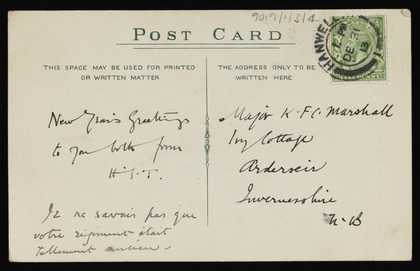 9019/1/3/4
POST CARD
HANWELL
DE 31
13
THIS SPACE MAY BE USED FOR PRINTED
OR WRITTEN MATTER
THE ADDRESS ONLY TO BE
WRITTEN HERE
New Year's Greetings
to you both from
H.S.T.
Je ne savais pas que
votre regiment était
tellement ancien.
Major K. F. C. Marshall
Ivy Cottage
Ardersier
Invernesshire
N-B